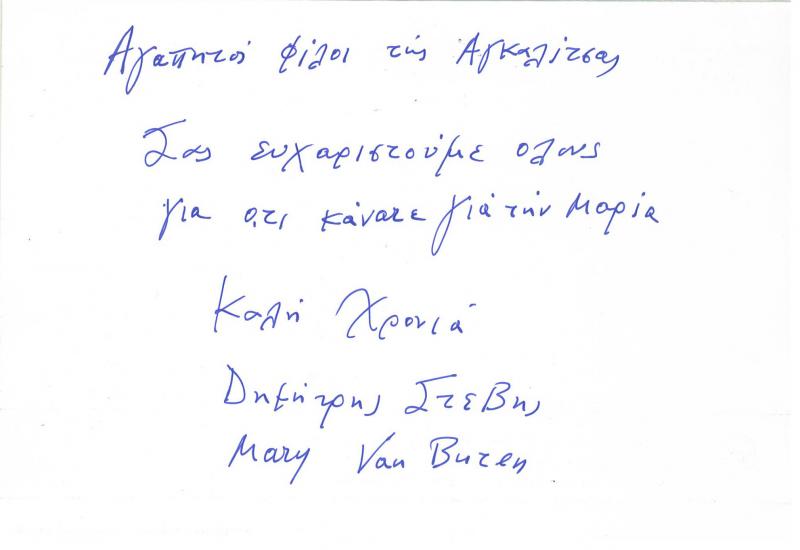 Αγαπητοί φίλοι της Αγκαλίτσας
Σας ευχαριστούμε όλους
για ό,τι κάνατε γιά την Μαρία
Καλή Χρονιά
Δημήτρης Στεβης
Mary Van Buren